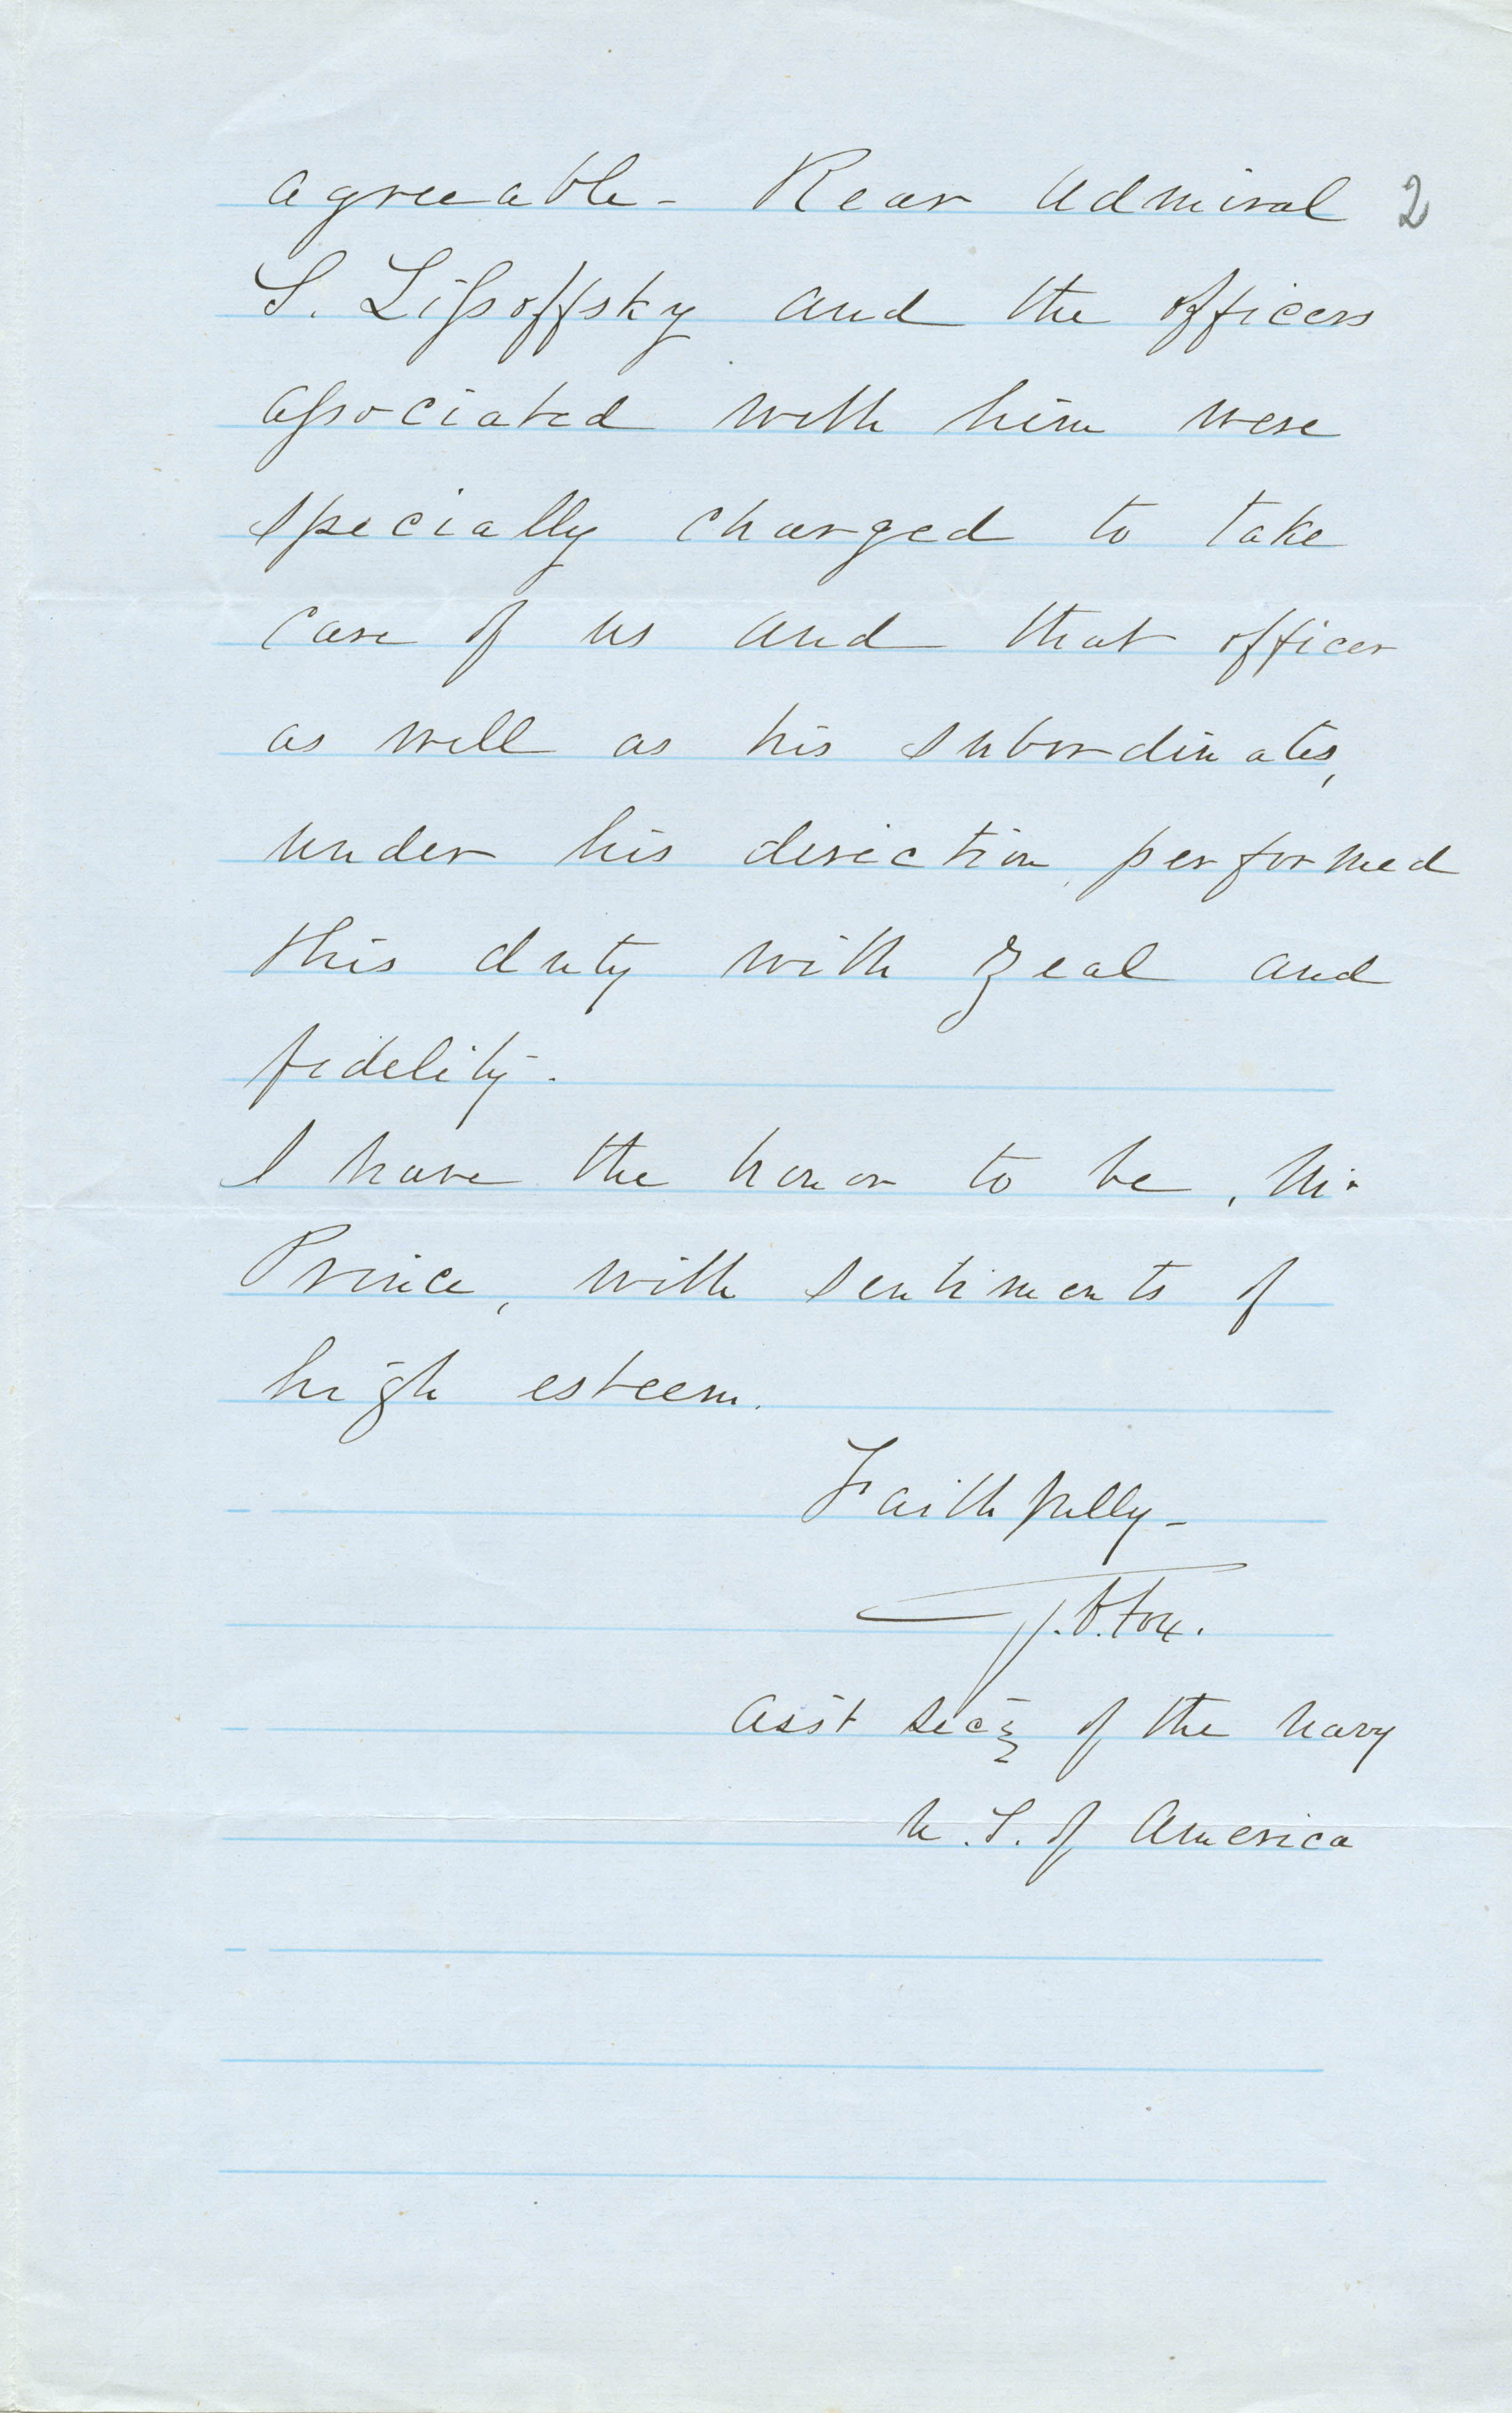 agreeable - Rear Admiral 2
S. Lissoffsky and the officers
associated with him were
specially charged to take
care of us and that officer
as well as his subordinates,
under his direction, performed
this duty with zeal and
fidelity.
I have the honor to be, Mr
Prince, with sentiments of
high esteem.
Faithfully -
G. V. Fox.
Ass't Sec'y of the Navy
U. S. of America